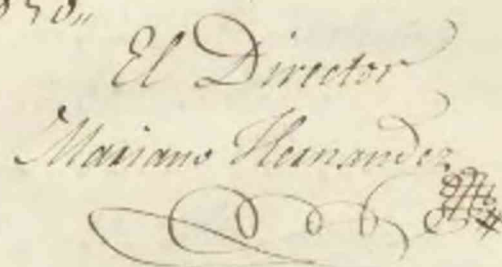 El Director
Mariano Hernandez